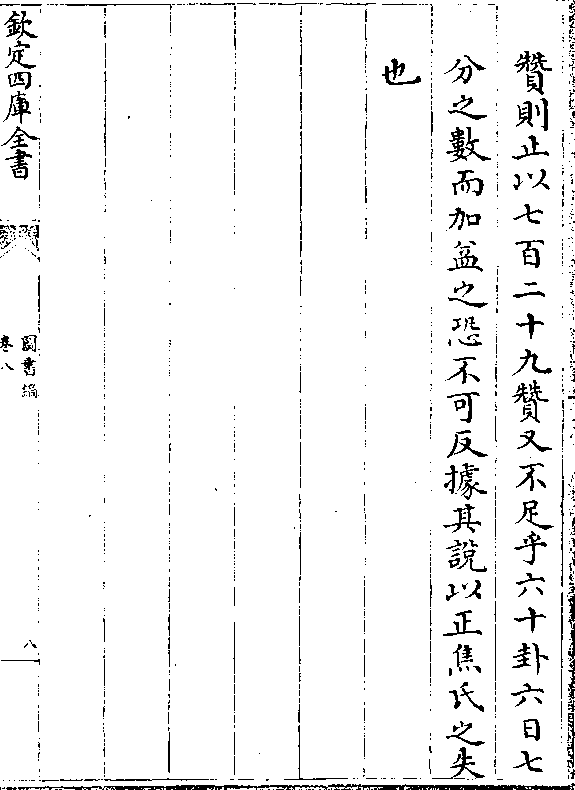 贊則止以七百二十九贊又不足乎六十卦六日七
分之數而加益之恐不可反據其說以正焦氏之失
也
欽定四庫全書
圖書編
卷八
八